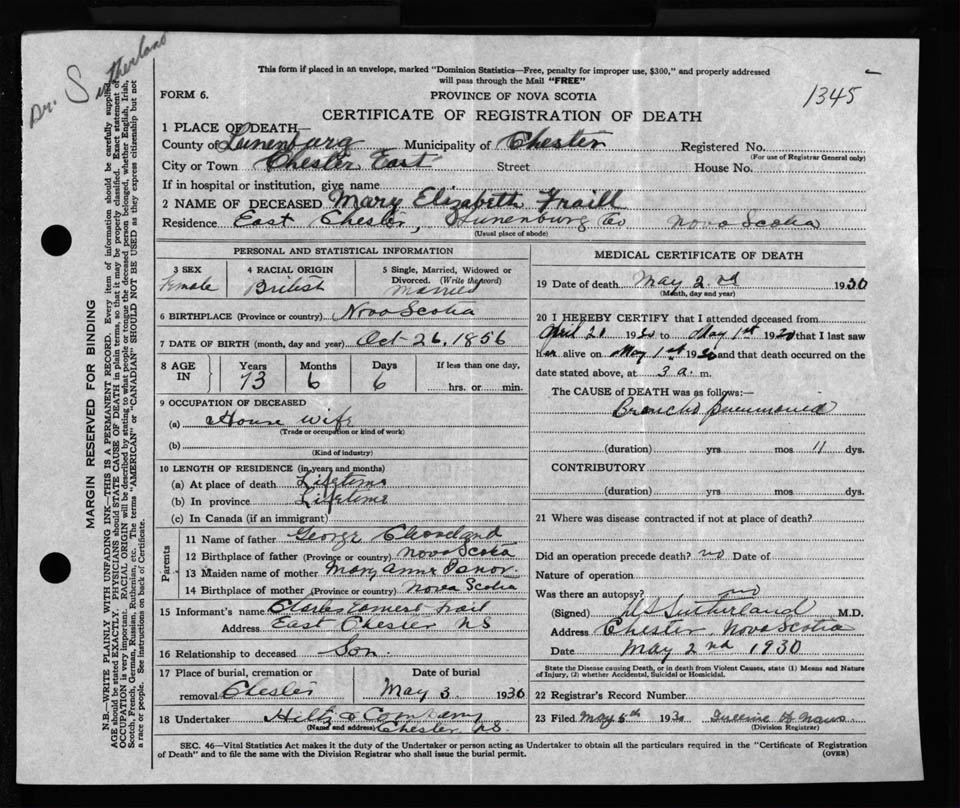 Dr. Sutherland
This form if placed in an envelope, marked "Dominion Statistics—Free, penalty for improper use, $300," and properly addressed
will pass through the Mail "FREE"
FORM 6. PROVINCE OF NOVA SCOTIA
1345
CERTIFICATE OF REGISTRATION OF DEATH
1 PLACE OF DEATH—
County of Lunenburg Municipality of Chester Registered No.
(For use of Registrar General only)
City or Town Chester East Street House No.
If in hospital or institution, give name
2 NAME OF DECEASED Mary Elizabeth Fraill
Residence East Chester, Lunenburg Co Nova Scotia
(Usual place of abode)
PERSONAL AND STATISTICAL INFORMATION
3 SEX 4 RACIAL ORIGIN 5 Single, Married, Widowed or
Divorced. (Write the word)
Female British Married
6 BIRTHPLACE (Province or country) Nova Scotia
7 DATE OF BIRTH (month, day and year) Oct 26, 1856
8 AGE IN Years Months Days If less than one day,
73 6 6 hrs. or min.
9 OCCUPATION OF DECEASED
(a) House wife
(Trade or occupation or kind of work)
(b)
(Kind of industry)
10 LENGTH OF RESIDENCE (in years and months)
(a) At place of death Lifetime
(b) In province Lifetime
(c) In Canada (if an immigrant)
Parents
11 Name of father George
12 Birthplace of father (Province or country) Nova Scotia
13 Maiden name of mother Mary Anne
14 Birthplace of mother (Province or country) Nova Scotia
15 Informant's name Charles Earnest Frail
Address East Chester NS
16 Relationship to deceased Son.
17 Place of burial, cremation or Date of burial
removal Chester May 3 1930
18 Undertaker Hiltz & Company
(Name and address) Chester N.S.
MEDICAL CERTIFICATE OF DEATH
19 Date of death May 2nd 1930
(Month, day and year)
20 I HEREBY CERTIFY that I attended deceased from
April 21 1930 to May 1st 1930 that I last saw
her alive on May 1st 1930 and that death occurred on the
date stated above, at 3 a. m.
The CAUSE OF DEATH was as follows:
Broncho pneumonia
(duration) yrs mos 11 dys.
CONTRIBUTORY
(duration) yrs mos dys.
21 Where was disease contracted if not at place of death?
Did an operation precede death? no Date of
Nature of operation
Was there an autopsy? no
(Signed) Sutherland M.D.
Address Chester, Nova Scotia
Date May 2nd 1930
State the Disease causing Death, or in death from Violent Causes, state (1) Means and Nature
of Injury, (2) whether Accidental, Suicidal or Homicidal.
22 Registrar's Record Number
23 Filed May 5th 1930
(Division Registrar)
SEC. 46—Vital Statistics Act makes it the duty of the Undertaker or person acting as Undertaker to obtain all the particulars required in the "Certificate of Registration
of Death" and to file the same with the Division Registrar who shall issue the burial permit. (OVER)
MARGIN RESERVED FOR BINDING
N.B.—WRITE PLAINLY WITH UNFADING INK—THIS IS A PERMANENT RECORD. Every item of information should be carefully supplied.
AGE should be stated EXACTLY. PHYSICIANS should STATE CAUSE OF DEATH in plain terms, so that it may be properly classified. Exact statement of
OCCUPATION is very important. RACIAL ORIGIN will be described by stating to what people or tongue the deceased person belonged, whether English, Irish,
Scotch, French, German, Russian, Ruthenian, etc. The terms "AMERICAN" or "CANADIAN" SHOULD NOT BE USED as they express citizenship but not
a race or people. See instructions on back of Certificate.